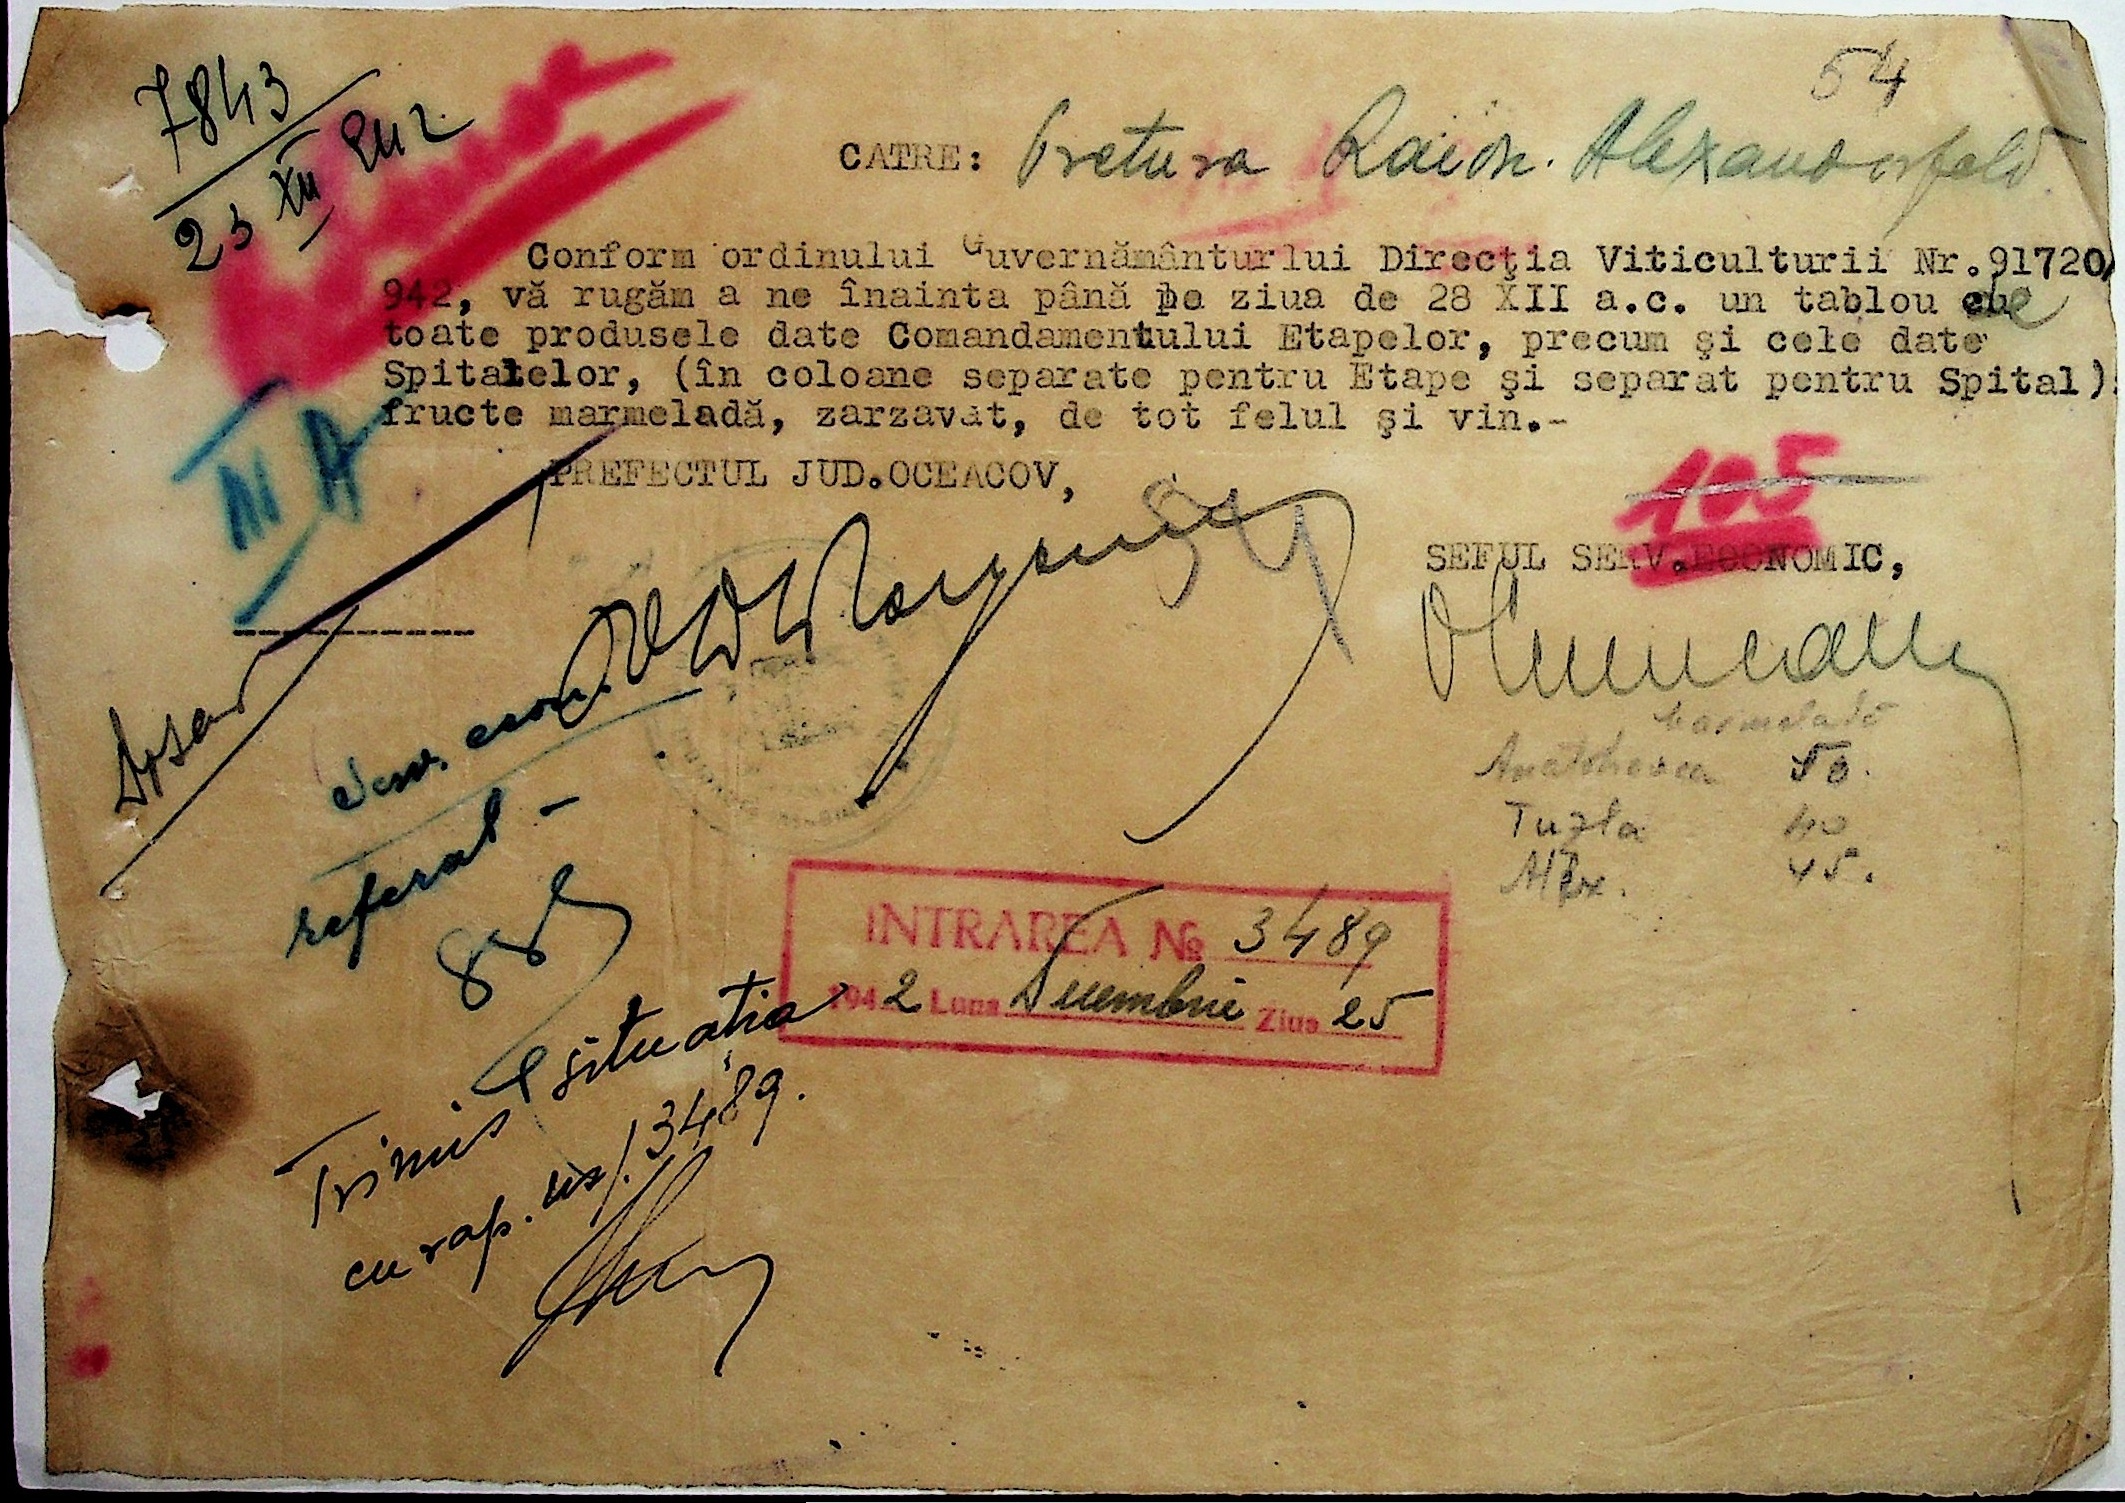 7843
23 XII 942
54
CATRE: Pretura Raion. Alexandorfeld
Conform ordinului Guvernământurlui Direcţia Viticulturii Nr.91720/
942, vă rugăm a ne înainta până pe ziua de 28 XII a.c. un tablou de
toate produsele date Comandamentului Etapelor, precum şi cele date
Spitalelor, (în coloane separate pentru Etape şi separat pentru Spital)
fructe marmeladă, zarzavat, de tot felul şi vin.-
III A
PREFECTUL JUD.OCEACOV,
54
105
SEFUL SERV.ECONOMIC,
Dosar
Serv. econ.
referat -
Marmelada
50.
Tuzla 40
Alex. 45.
INTRAREA No 3489
1942 Luna Decembrie Ziua 25
Trimis situatia
cu rap. ns/. 3489.